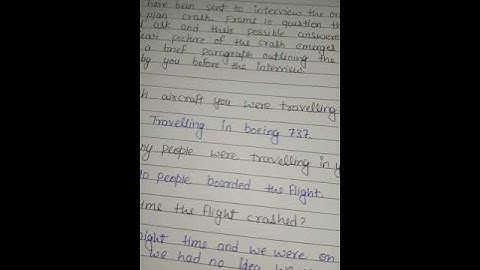 have been sent to interview the on
plan crash. Frame 10 question th
ask and their possible answere
ear picture of the crash emerges
a brief paragraph outlining the
by you before the interview.
h aircraft you were travelling
Travelling in boeing 737.
ny people were travelling in y
10 people boarded the flight.
time the flight crashed?
night time and we were on
we had no Idea we